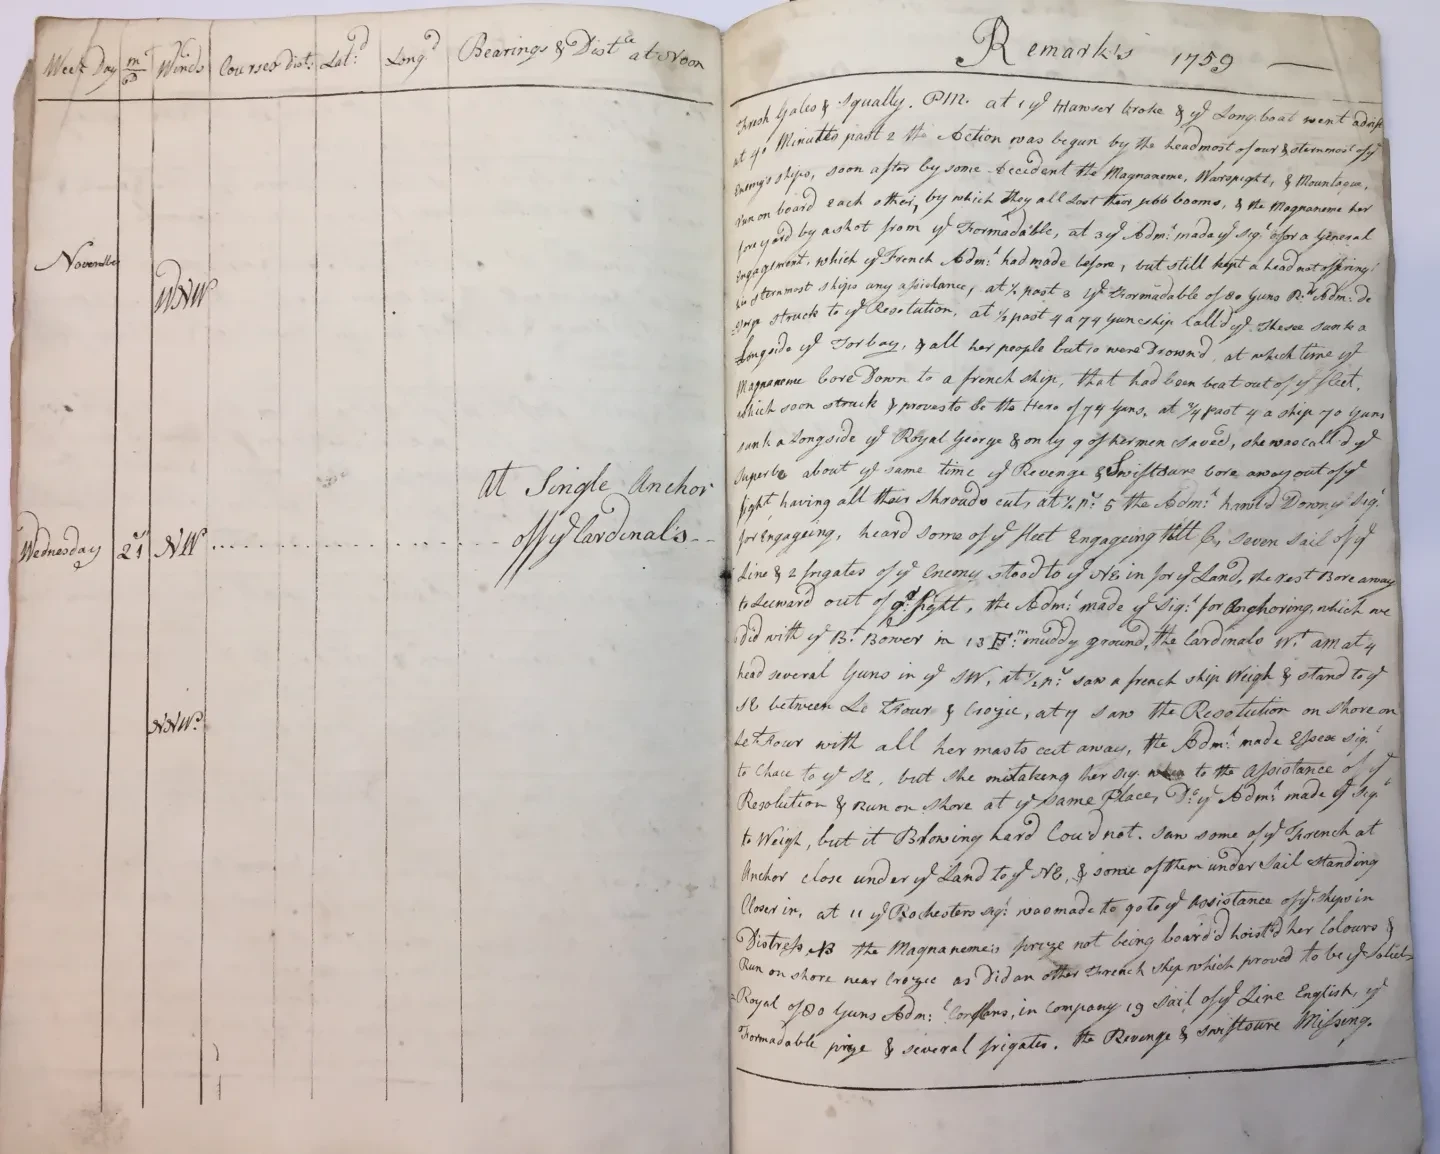 Week Day m/d Winds Courses Dist: Lat:d Long:d Bearings & Dist.ce at Noon
November
WNW
at Single Anchor
off ye Cardinal's
Wednesday 21st NW
NNW.
Remark's 1759
Fresh Gales & Squally. PM. at 1 ye Hawser broke & ye Long boat went adrift
at 40 Minutes past 2 the Action was begun by the headmost of our & sternmost of ye
Enemy's ships, soon after by some Accident the Magnaneme, Warspight, & Mountague,
run on board Each other, by which they all Lost their jibb booms, & the Magnaneme her
fore yard by a shot from ye Formadable, at 3 ye Adm:l made ye Sig:l for a General
Engagement, which ye French Adm:l had made before, but still kept a head not offering
his sternmost ships any assistance, at ½ past 3 ye Formadable of 80 Guns R:r Adm: de
Verge struck to ye Resolution, at ½ past 4 a 74 Gun ship Call'd ye Thesee sunk a
Longside ye Torbay, & all her people but 10 were Drown'd, at which time ye
Magnaneme bore Down to a french ship, that had been beat out of ye fleet,
which soon struck & proves to be the Hero of 74 Guns, at ¾ past 4 a ship 70 Guns
sunk a Longside ye Royal George & only 9 of her men Saved, she was call'd ye
Superbe about ye same time ye Revenge & Swiftsure bore away out of ye
fight having all their Shrouds cut, at ½ p:t 5 the Adm:l hawl'd Down ye Sig:l
for Engageing, heard some of ye fleet Engageing till 6, seven sail of ye
Line & 2 frigates of ye Enemy stood to ye NE in for ye Land, the rest Bore away
to Leeward out of g:d fight, the Adm:l made ye Sig:l for Anchoring, which we
Did with ye B:t Bower in 13 F:m muddy ground, the Cardinals W:t am at 4
head several Guns in ye SW, at ½ p:t saw a french ship Weigh & stand to ye
SE between Le Four & Crozie, at 7 saw the Resolution on shore on
Le Four with all her masts cut away, the Adm:l made Essex Sig:l
to Chace to ye SE, but she mistaking her sig: went to the Assistance of ye
Resolution & Run on shore at ye same Place, D:o ye Adm:l made ye Sig:l
to Weigh, but it Blowing hard Cou'd not. saw some of ye French at
Anchor close under ye Land to ye NE, & some of them under Sail standing
Closer in, at 11 ye Rochesters Sig:l was made to go to ye Assistance of ye ships in
Distress, NB the Magnaneme's prize not being board'd hoist'd her Colours &
Run on shore near Crozie as did an other French Ship which proved to be ye Soliel=
=Royal of 80 Guns Adm:l Conflans, in Company 19 Sail of ye Line English, ye
Formadable prize & several frigates. the Revenge & Swiftsure Missing.